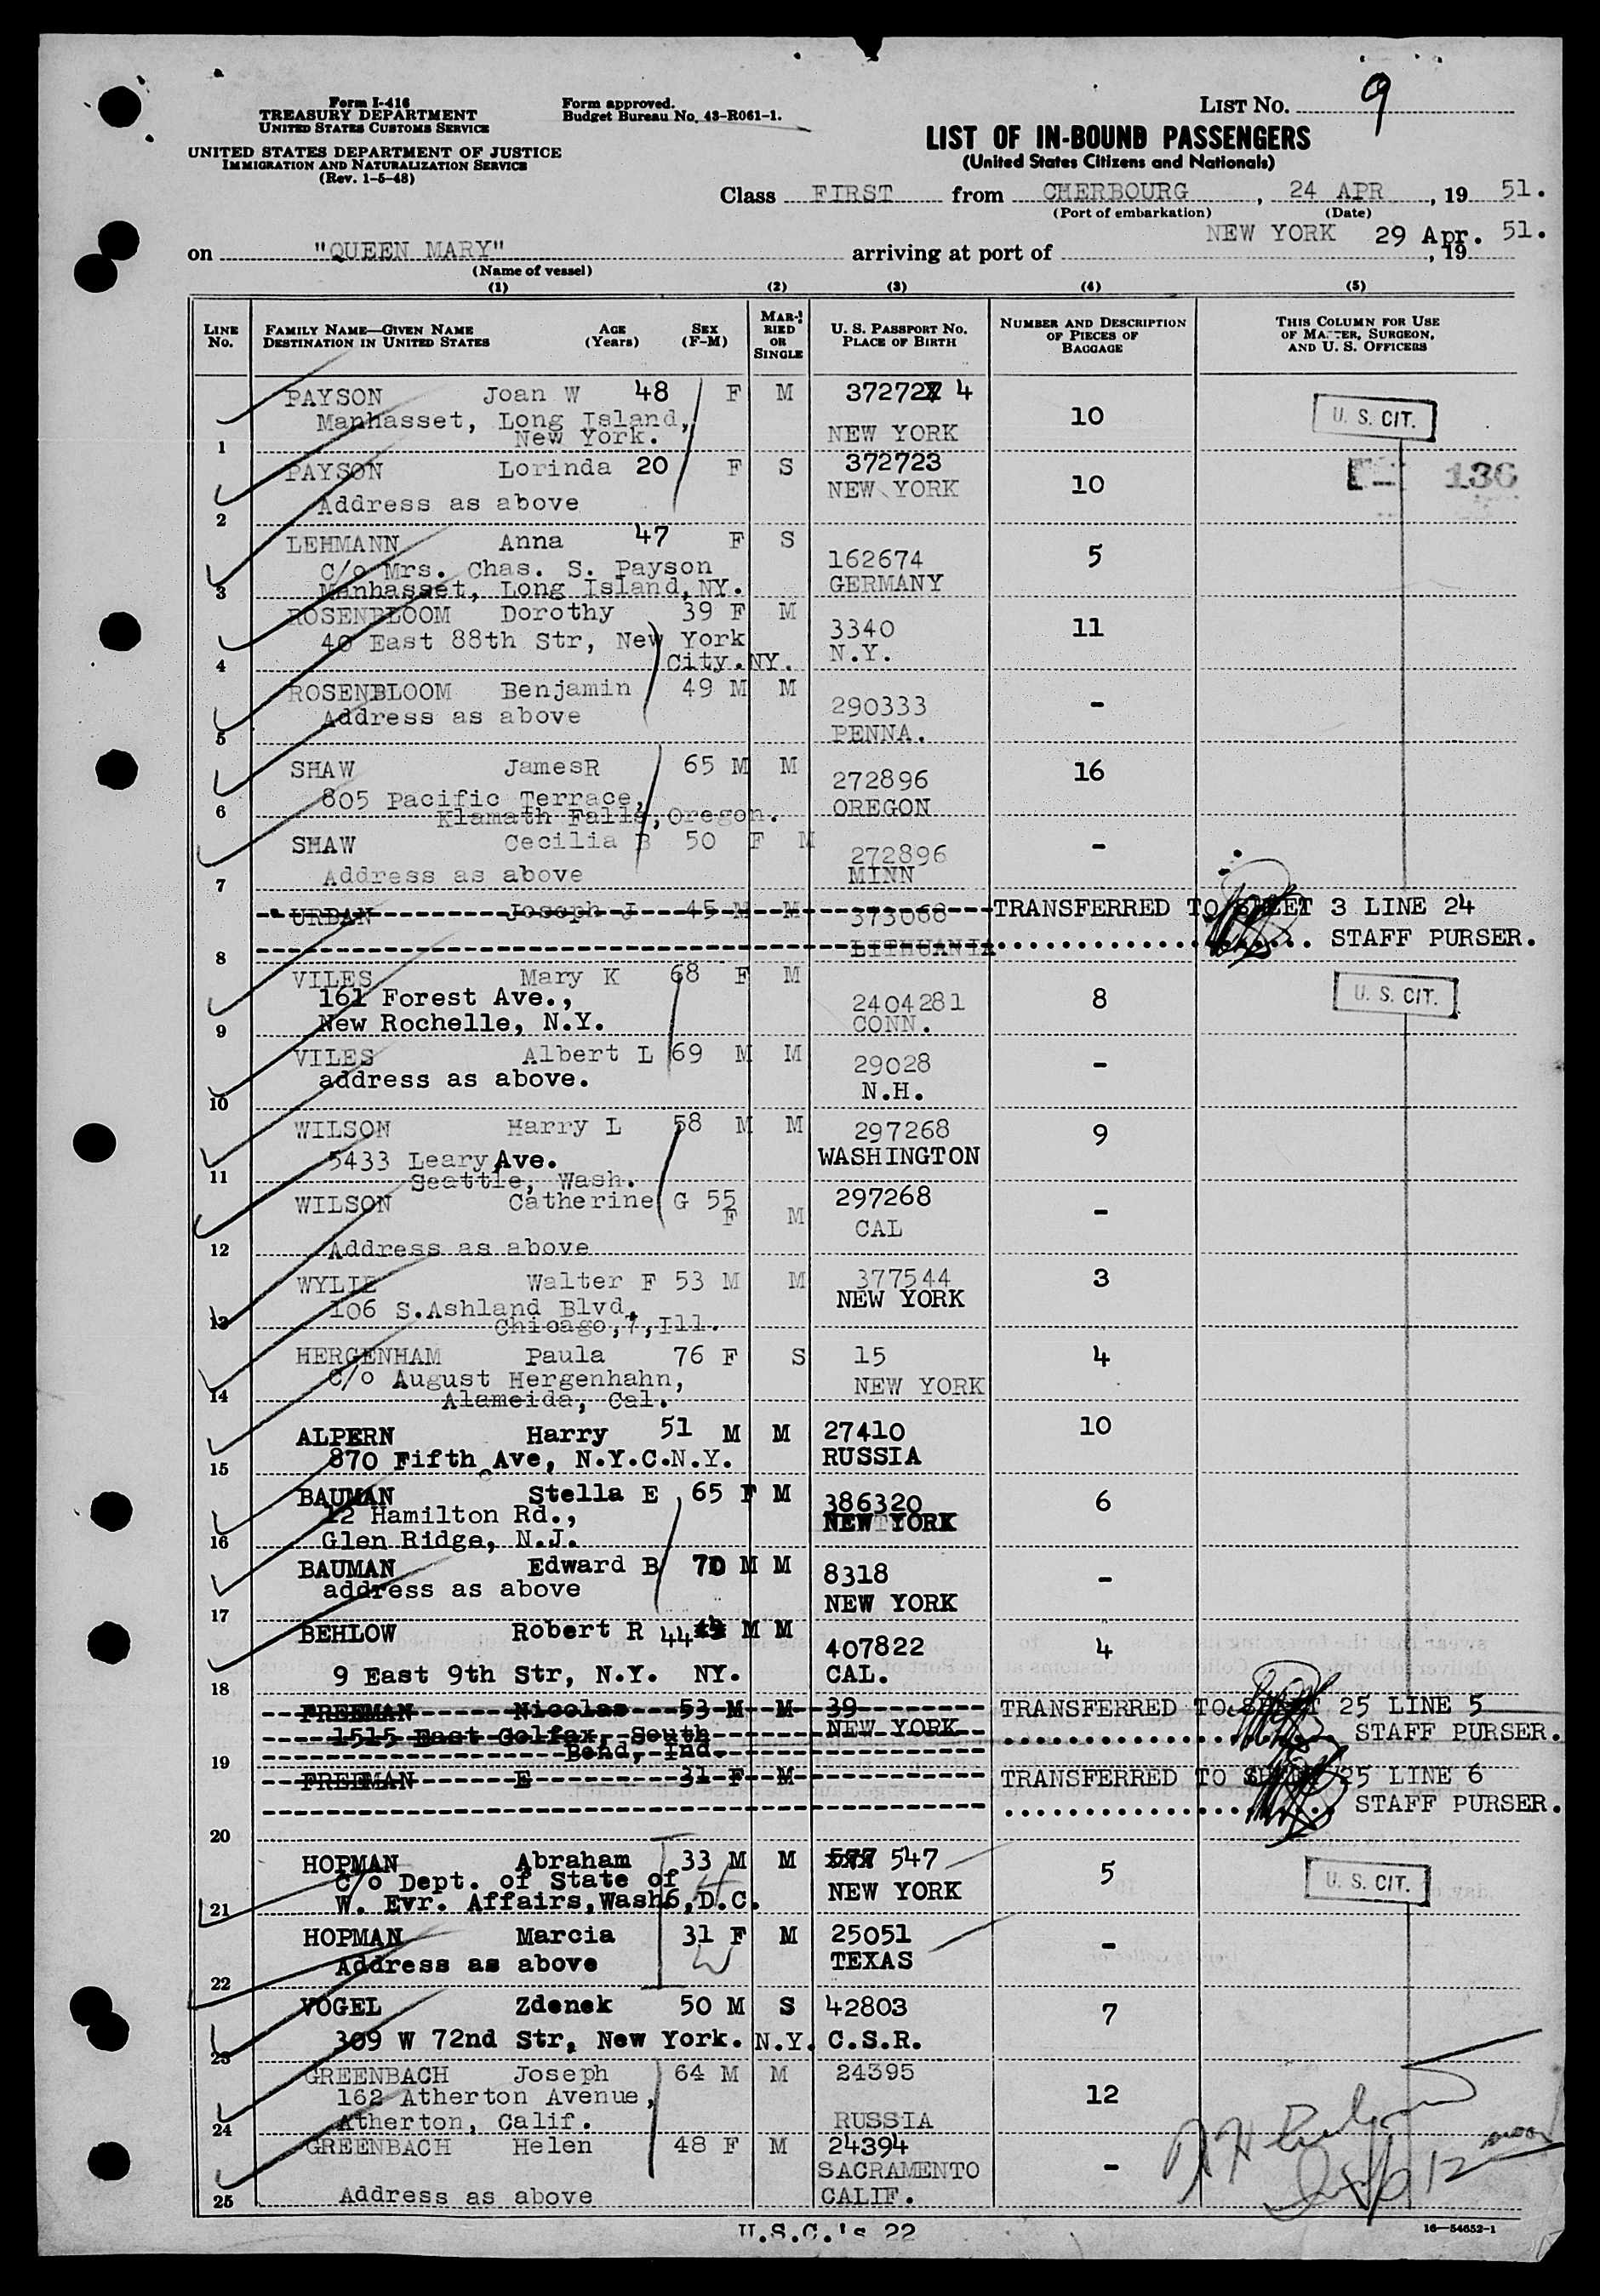 Form I-416
TREASURY DEPARTMENT
UNITED STATES CUSTOMS SERVICE
UNITED STATES DEPARTMENT OF JUSTICE
IMMIGRATION AND NATURALIZATION SERVICE
(Rev. 1-5-48)
Form approved.
Budget Bureau No. 43-R061-1.
LIST NO. 9
LIST OF IN-BOUND PASSENGERS
(United States Citizens and Nationals)
Class FIRST from CHERBOURG, 24 APR, 19 51.
(Port of embarkation) (Date)
on "QUEEN MARY" arriving at port of NEW YORK 29 Apr. , 19 51.
(Name of vessel)
(1) (2) (3) (4) (5)
LINE NO. FAMILY NAME—GIVEN NAME DESTINATION IN UNITED STATES AGE (Years) SEX (F-M) MARRIED OR SINGLE U. S. PASSPORT NO. PLACE OF BIRTH NUMBER AND DESCRIPTION OF PIECES OF BAGGAGE THIS COLUMN FOR USE OF MASTER, SURGEON, AND U. S. OFFICERS
PAYSON Joan W 48 F M 37272 4 10 U. S. CIT.
Manhasset, Long Island,
New York. NEW YORK
1
PAYSON Lorinda 20 F S 372723 10 136
Address as above NEW YORK
2
LEHMANN Anna 47 F S 162674 5
C/o Mrs. Chas. S. Payson
Manhasset, Long Island, NY. GERMANY
3
ROSENBLOOM Dorothy 39 F M 3340 11
40 East 88th Str, New York
City. NY. N.Y.
4
ROSENBLOOM Benjamin 49 M M 290333 -
Address as above PENNA.
5
SHAW JamesR 65 M M 272896 16
805 Pacific Terrace,
Klamath Falls, Oregon. OREGON
6
SHAW Cecilia B 50 F M 272896 -
Address as above MINN
7
URBAN Joseph J 45 M M 373068 TRANSFERRED TO SHEET 3 LINE 24
LITHUANIA STAFF PURSER.
8
VILES Mary K 68 F M 2404281 8 U. S. CIT.
161 Forest Ave.,
New Rochelle, N.Y. CONN.
9
VILES Albert L 69 M M 29028 -
address as above. N.H.
10
WILSON Harry L 58 M M 297268 9
5433 Leary Ave. WASHINGTON
Seattle, Wash.
11
WILSON Catherine G 55 F M 297268 -
CAL
Address as above
12
WYLIE Walter F 53 M M 377544 3
106 S.Ashland Blvd. NEW YORK
Chicago,7,Ill.
13
HERGENHAM Paula 76 F S 15 4
C/o August Hergenhahn, NEW YORK
Alameida, Cal.
14
ALPERN Harry 51 M M 27410 10
870 Fifth Ave, N.Y.C.N.Y. RUSSIA
15
BAUMAN Stella E 65 F M 386320 6
12 Hamilton Rd., NEW YORK
Glen Ridge, N.J.
16
BAUMAN Edward B 70 M M 8318 -
address as above NEW YORK
17
BEHLOW Robert R 44 M M 407822 4
9 East 9th Str, N.Y. NY. CAL.
18
FREEMAN Nicolas 53 M M 39 TRANSFERRED TO SHEET 25 LINE 5
1515 East Colfax, South NEW YORK STAFF PURSER.
Bend, Ind.
19
FREEMAN E 31 F M TRANSFERRED TO SHEET 25 LINE 6
STAFF PURSER.
20
HOPMAN Abraham 33 M M 547 5 U. S. CIT.
C/o Dept. of State of
W. Evr. Affairs,Wash6,D.C. NEW YORK
21
HOPMAN Marcia 31 F M 25051 -
Address as above TEXAS
22
VOGEL Zdenek 50 M S 42803 7
309 W 72nd Str, New York. N.Y. C.S.R.
23
GREENBACH Joseph 64 M M 24395 12
162 Atherton Avenue,
Atherton, Calif. RUSSIA
24
GREENBACH Helen 48 F M 24394 -
SACRAMENTO
Address as above CALIF.
25
U.S.C.'s 22
16—54652-1